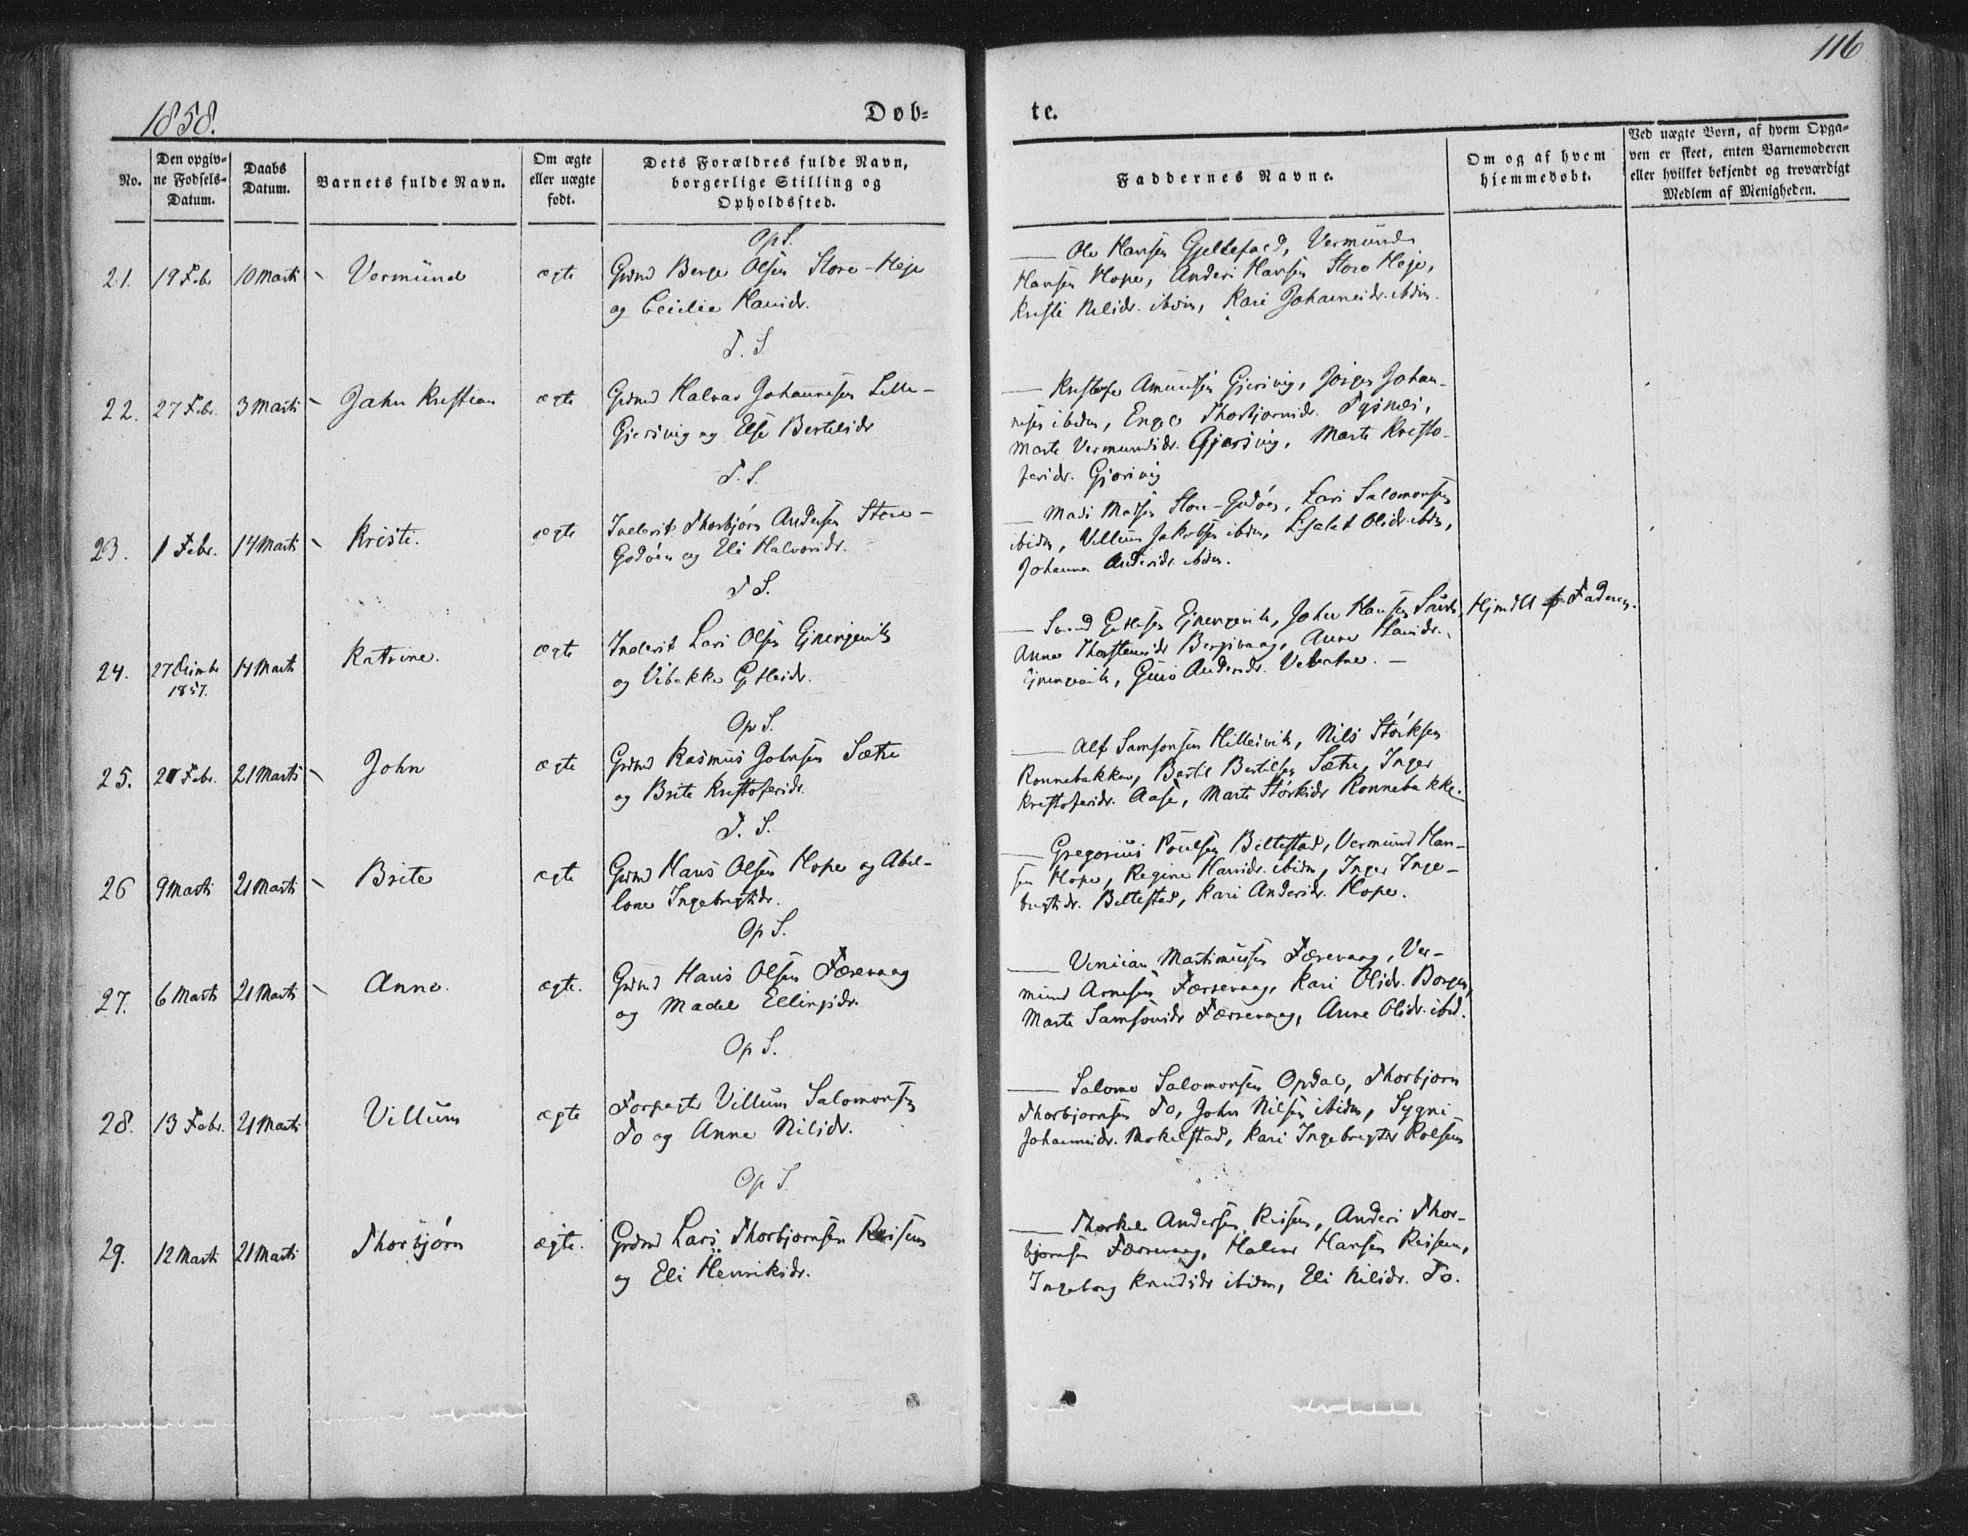 116
1858.
Døb=
te.
No.
Den opgiv-
ne Fødsels-
Datum.
Daabs
Datum.
Barnets fulde Navn.
Om ægte
eller uægte
født.
Dets Forældres fulde Navn,
borgerlige Stilling og
Opholdssted.
Faddernes Navne.
Om og af hvem
hjemmedøbt.
Ved uægte Børn, af hvem Opga-
ven er skeet, enten Barnemoderen
eller hvilket bekjendt og troværdigt
Medlem af Menigheden.
Op S.
21. 19 Febr 10 Marti Vermund ægte Grdmd Berge Olsen Store-Heje
og Cecilie Hansdr.
Ole Hansen Gjeldefald, Vermund
Hansen Hope, Anders Hansen Store Heje,
Kristi Nilsdr. ibdm, Kari Johannesdr. ibdm.
T. S.
22. 27 Febr. 3 Marti Jahn Kristian ægte Grdmd Halvor Johannesen Lille-
Gjersvig og Else Bertelsdr
Kristofer Amundsen Gjersvig, Jørgen Johan-
nesen ibidm, Engel Thorbjørnsdr. Tysnes,
Marte Vermundsdr. Gjersvig, Marte Kristo-
fersdr. Gjersvig
T. S.
23. 1 Febr. 14 Marti Kriste. ægte Inderst Thorbjørn Andersen Store-
Godøen og Eli Halvorsdr.
Mads Madsen Store-Godøen, Lars Salomonsen
ibidm, Villum Jakobsen ibidm, Lisabet Olsdr ibdm,
Johanna Andersdr. ibdm.
T S.
24. 27 Decmbr 14 Marti Katrine. ægte Inderst Lars Olsen Ejnergevik
1857.
og Vibekke Gjtlesdr.
Svend Ejnergevik, John Hansen
Hjmdbt af Faderen.
Anne Thorstensdr Bergsvaag, Anne
Ejnergevik, Guro Andersdr. Vebatne. —
Op S.
25. 21 Febr. 21 Marti John ægte Grdmd Rasmus Johnsen Sætre
og Brite Kristofersdr.
Alf Samsonsen Hillesvik, Nils Størksen
Ronnebakken, Bertil Bertilsen Sætre, Inger
Kristofersdr. Aase, Marte Størksdr Ronnebakke.
T. S.
26 9 Marti 21 Marti Brite ægte Grdmd Hans Olsen Hope og Abel-
lone Ingebrigtsdr.
Gregorius Poulsen Beltestad, Vermund Han-
sen Hope, Regine Hansdr. ibidm, Inger Inge-
brigtsdr. Beltestad, Kari Andersdr. Hope.
Op S.
27. 6 Marti 21 Marti Anne. ægte. Grdmd Hans Olsen Færevaag
og Madel Ellingsdr.
Vinician Martinussen Færevaag, Ver-
mund Arnesen Færevaag, Kari Olsdr. Borgen,
Marte Samsonsdr Færevaag, Anne Olsdr. ibid.
Op S.
28. 13 Febr. 21 Marti Villum ægte Forpagter Villum Salomonsen
To og Anne Nilsdr.
Salomo Salomonsen Opdal, Thorbjørn
Thorbjørnsen To, John Nilsen ibidm, Sygni-
Johannesdr. Mokestad, Kari Ingebrigtsdr Rolfsen
Op S.
29. 12 Marti 21 Marti Thorbjørn ægte. Grdmd Lars Thorbjørnsen Reisen
og Eli Henriksdr.
Thorkel Andersen Reisen, Anders Thor-
bjørnsen Færevaag, Halvor Hansen Reisen,
Ingeborg Knudsdr ibidm, Eli Nilsdr. To.